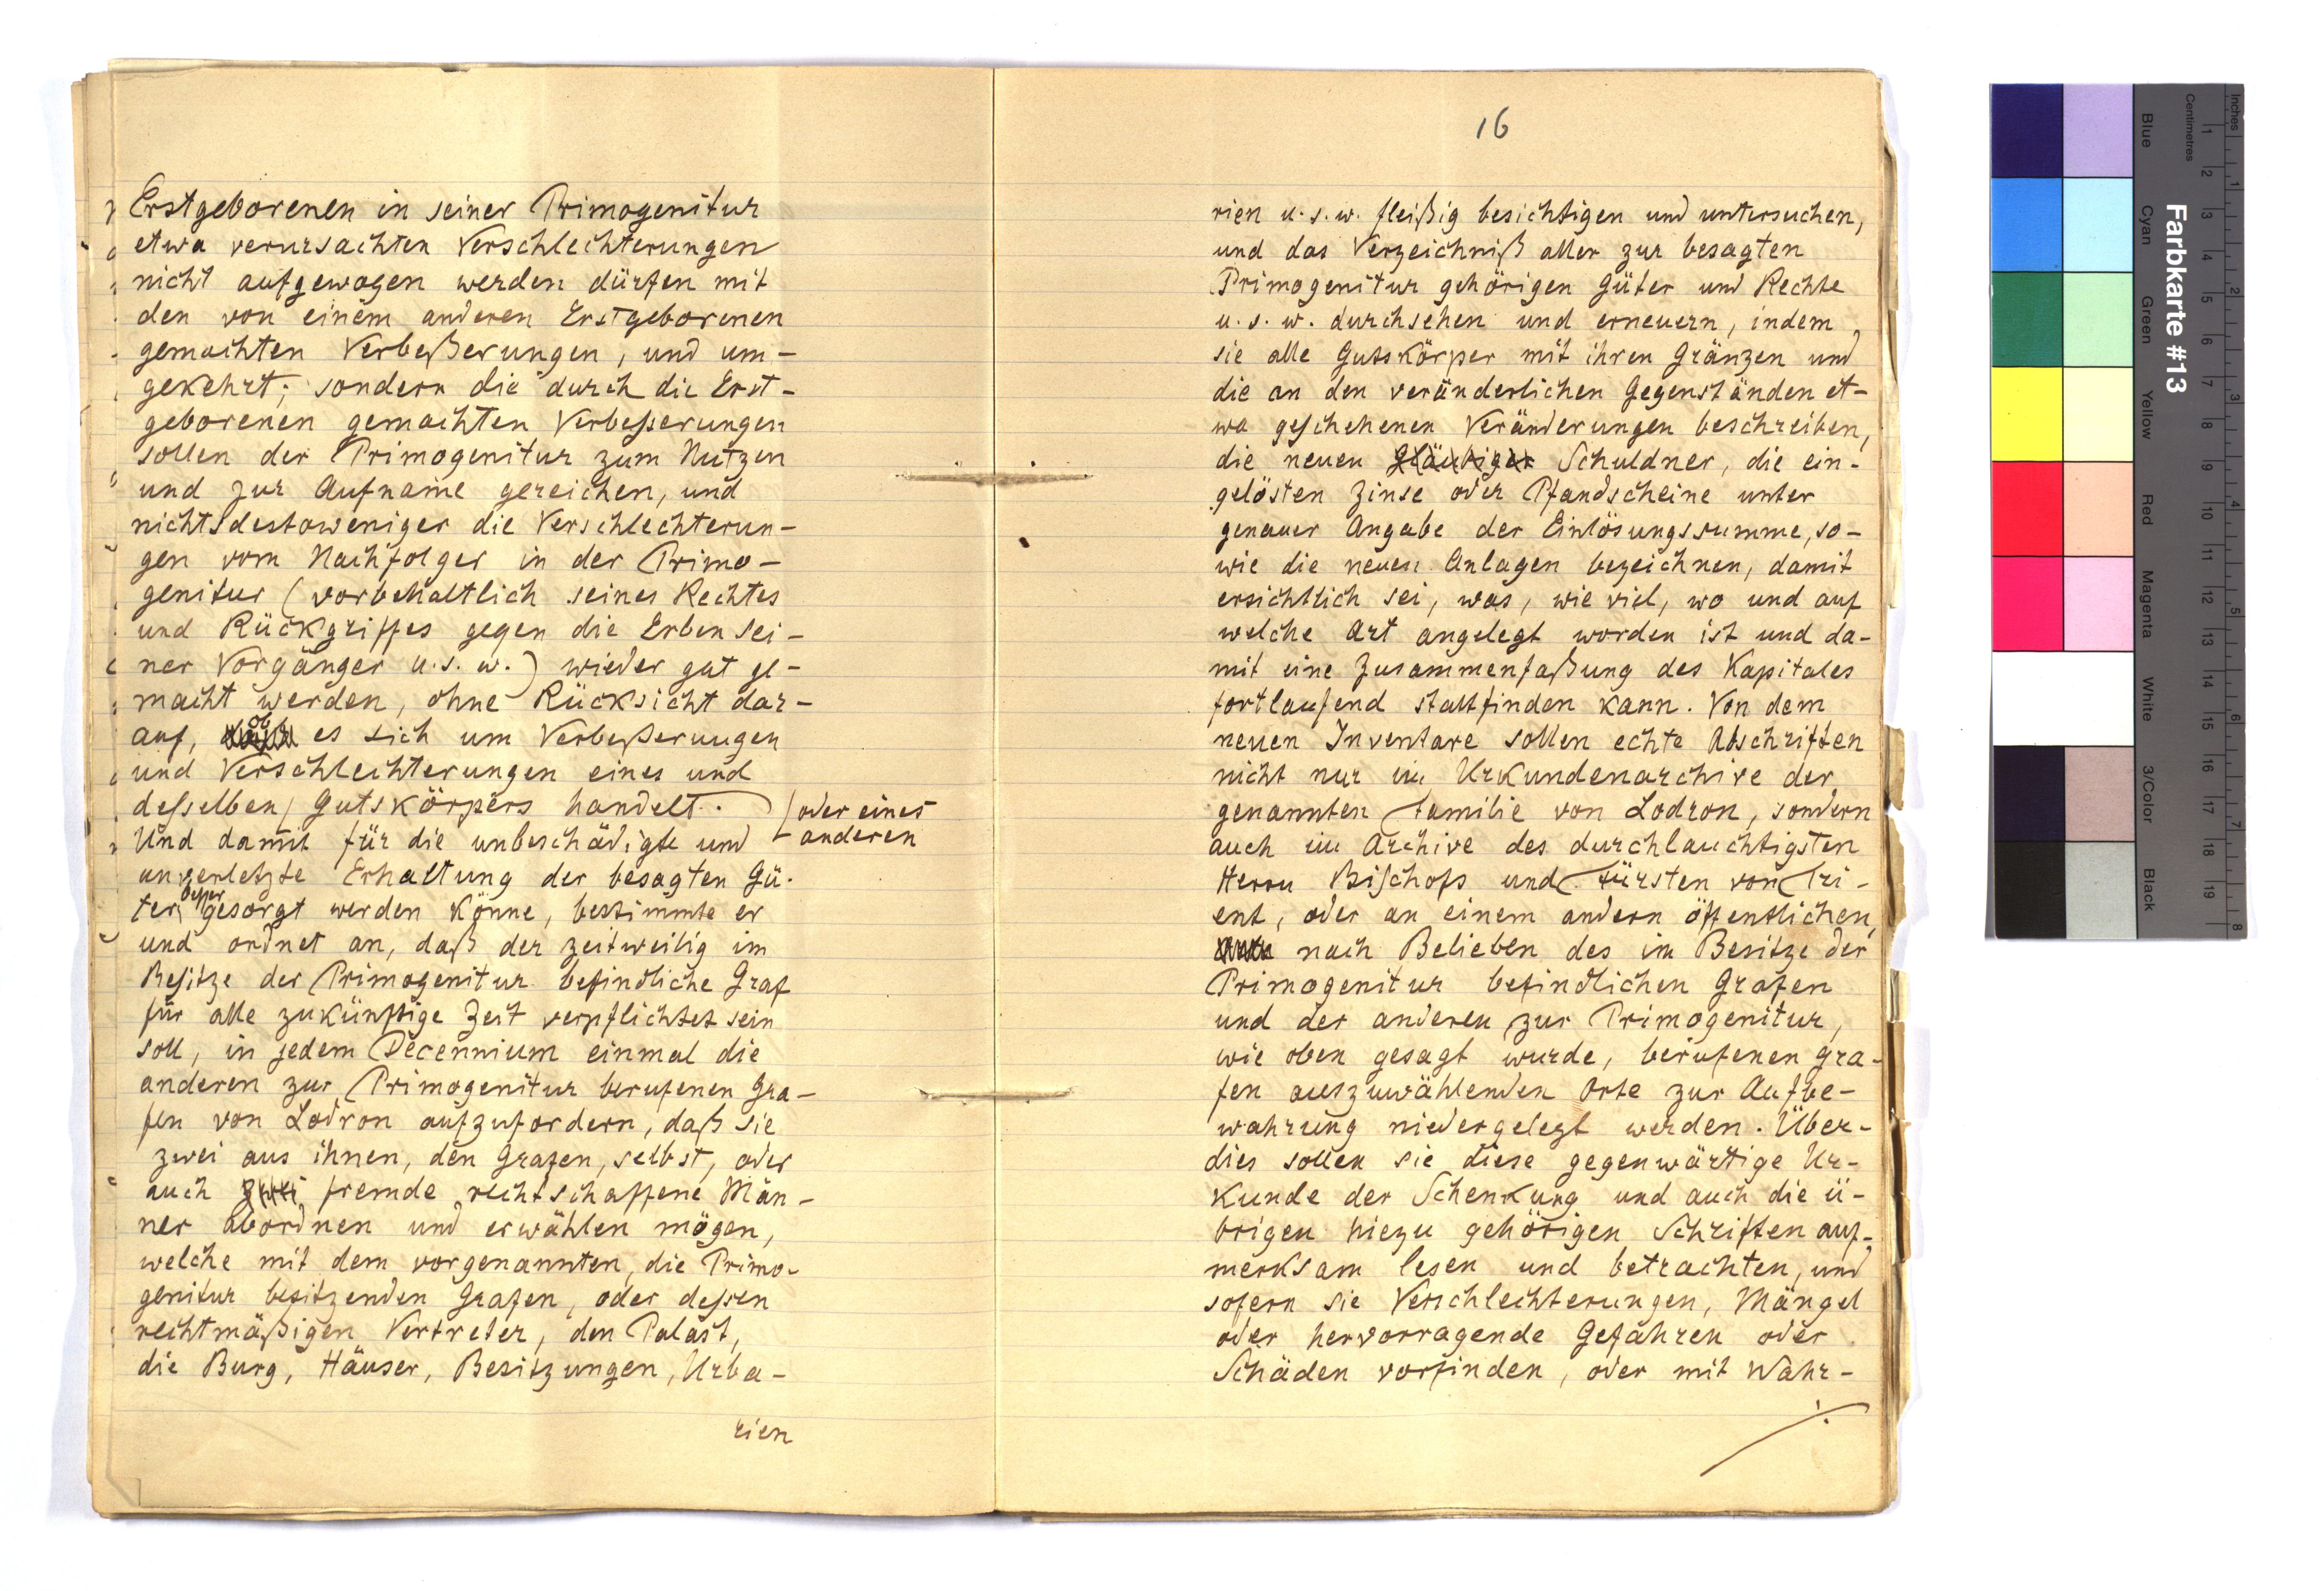 Erstgeborenen in seiner Primogenitur
etwa verursachten Verschlechterungen
nicht aufgewogen werden dürfen mit
den von einem anderen Erstgeborenen
gemachten Verbeßerungen, und um-
gekehrt; sondern die durch die Erst-
geborenen gemachten Verbesserungen
sollen der Primogenitur zum Nutzen
und zur Aufname gereichen, und
nichtsdestoweniger die Verschlechterun-
gen vom Nachfolger in der Primo-
genitur (vorbehaltlich seines Rechtes
und Rückgriffes gegen die Erben sei-
ner Vorgänger u.s.w.) wieder gut ge-
macht werden, ohne Rücksicht dar-
auf, ob es sich um Verbeßerungen
und Verschlechterungen eines und
desselben Gutskörpers handelt.
oder eines
anderen
Und damit für die unbeschädigte und
unverletzte Erhaltung der besagten Gü-
ter besser gesorgt werden könne, bestimmte er
und ordnet an, daß der zeitweilig im
Besitze der Primogenitur befindliche Graf
für alle zukünftige Zeit verpflichtet sein
soll, in jedem Decennium einmal die
anderen zur Primogenitur berufenen Gra-
fen von Lodron aufzufordern, daß sie
zwei aus ihnen, den Grafen, selbst, oder
auch zwei fremde rechtschaffene Män-
ner abordnen und erwählen mögen,
welche mit dem vorgenannten, die Primo-
genitur besitzenden Grafen, oder dessen
rechtmäßigen Vertreter, den Palast,
die Burg, Häuser, Besitzungen, Urba-
rien
16
rien u.s.w. fleißig besichtigen und untersuchen,
und das Verzeichniß aller zur besagten
Primogenitur gehörigen Güter und Rechte
u.s.w. durchsehen und erneuern, indem
sie alle Gutskörper mit ihren Gränzen und
die an den veränderlichen Gegenständen et-
wa geschehenen Veränderungen beschreiben,
die neuen Gläubiger Schuldner, die ein-
gelösten Zinse oder Pfandscheine unter
genauer Angabe der Einlösungssumme, so-
wie die neuen Anlagen bezeichnen, damit
ersichtlich sei, was, wie viel, wo und auf
welche Art angelegt worden ist und da-
mit eine Zusammenfaßung des Kapitales
fortlaufend stattfinden kann. Von dem
neuen Inventare sollen echte Abschriften
nicht nur im Urkundenarchive der
genannten Familie von Lodron, sondern
auch im Archive des durchlauchtigsten
Herrn Bischofs und Fürsten von Tri-
ent, oder an einem andern öffentlichen,
nach Belieben des im Besitze der
Primogenitur befindlichen Grafen
und der anderen zur Primogenitur,
wie oben gesagt wurde, berufenen Gra-
fen auszuwählenden Orte zur Aufbe-
wahrung niedergelegt werden. Über-
dies sollen sie diese gegenwärtige Ur-
kunde der Schenkung und auch die ü-
brigen hiezu gehörigen Schriften auf-
merksam lesen und betrachten, und
sofern sie Verschlechterungen, Mängel
oder hervorragende Gefahren oder
Schäden vorfinden, oder mit Wahr-
./.
Farbkarte #13
Inches
Centimetres
1 2 3 4 5 6 7 8 9 10 11 12 13 14 15 16 17 18 19
1 2 3 4 5 6 7 8
Blue
Cyan
Green
Yellow
Red
Magenta
White
3/Color
Black